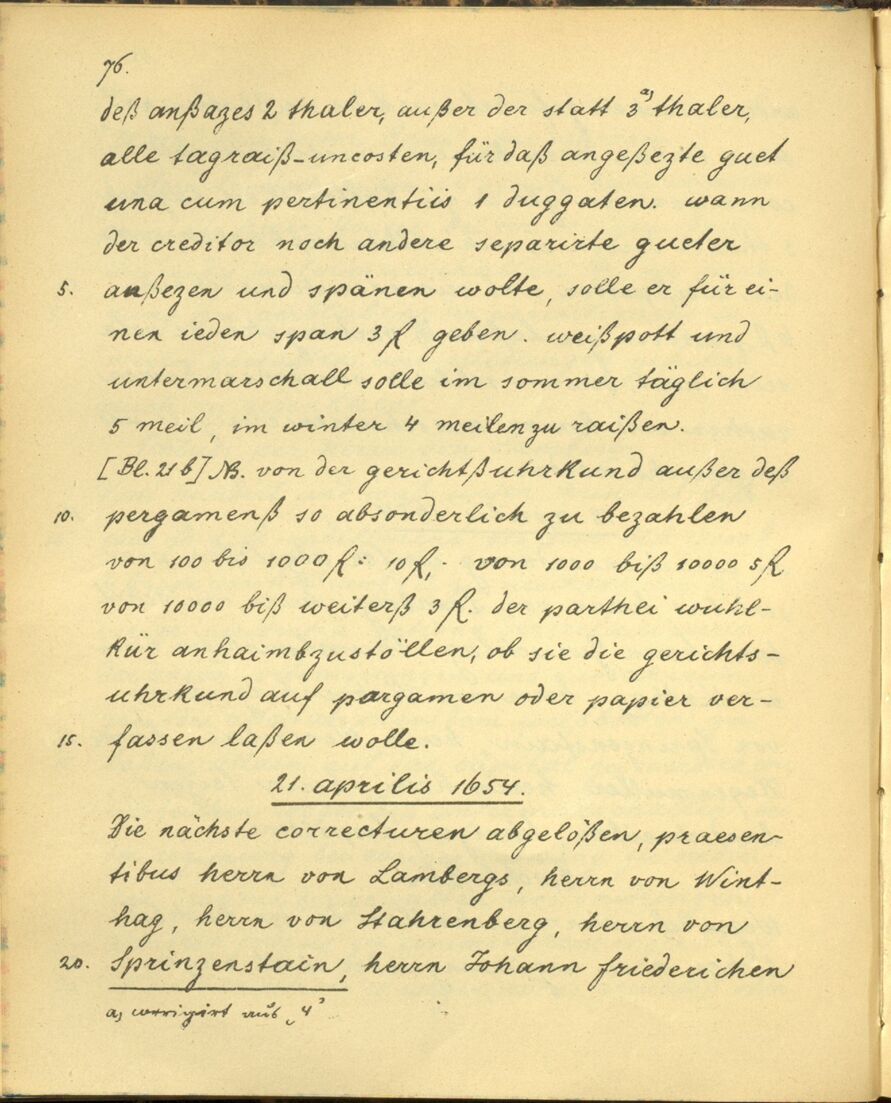 76.
deß anßazes 2 thaler, außer der statt 3 a) thaler,
alle tagraiß-uncosten, für daß angeßezte guet
una cum pertinentiis 1 duggaten. wann
der creditor noch andere separirte gueter
5. anßezen und spänen wolte, solle er für ei-
nen ieden span 3 fl geben. weißpott und
untermarschall solle im sommer täglich
5 meil, im winter 4 meilen zu raißen.
[Bl. 21b] NB. von der gerichtßuhrkund außer deß
10. pergamenß so absonderlich zu bezahlen
von 100 bis 1000 fl: 10 fl, von 1000 biß 10000 5 fl
von 10000 biß weiterß 3 fl. der parthei wuhl-
kür anhaimbzustöllen, ob sie die gerichts-
uhrkund auf pargamen oder papier ver-
15. fassen laßen wolle.
21. aprilis 1654.
Die nächste correcturen abgelößen, praesen-
tibus herrn von Lambergs, herrn von Wint-
hag, herrn von Stahrenberg, herrn von
20. Sprinzenstain, herrn Johann friederichen
a) corrigirt aus „4"